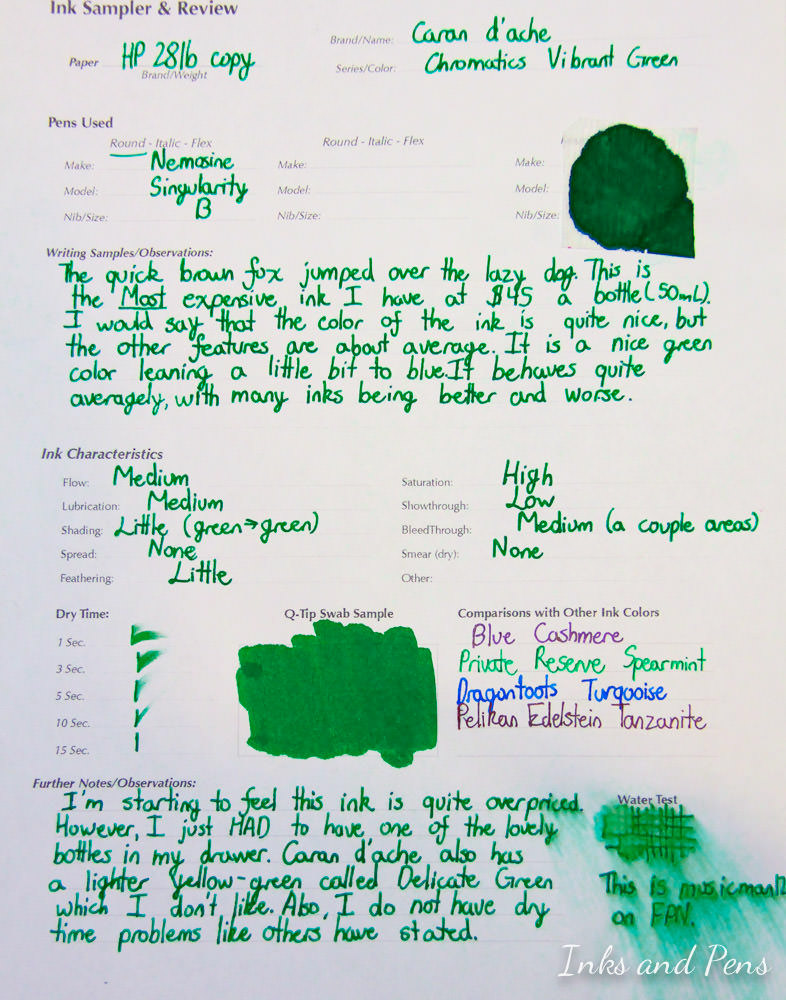 Ink Sampler & Review
Brand/Name: Caran d'ache
Paper HP 28lb copy
Brand/Weight
Series/Color: Chromatics Vibrant Green
Pens Used
Round - Italic - Flex
Round - Italic - Flex
Make: Nemosine
Make:
Make:
Model: Singularity
Model:
Model:
Nib/Size: B
Nib/Size:
Nib/Size:
Writing Samples/Observations:
The quick brown fox jumped over the lazy dog. This is
the Most expensive ink I have at $45 a bottle (50mL).
I would say that the color of the ink is quite nice, but
the other features are about average. It is a nice green
color leaning a little bit to blue. It behaves quite
averagely, with many inks being better and worse.
Ink Characteristics
Flow: Medium
Saturation: High
Lubrication: Medium
Showthrough: Low
Shading: Little (green→green)
BleedThrough: Medium (a couple areas)
Spread: None
Smear (dry): None
Feathering: Little
Other:
Dry Time:
1 Sec.
3 Sec.
5 Sec.
10 Sec.
15 Sec.
Q-Tip Swab Sample
Comparisons with Other Ink Colors
Blue Cashmere
Private Reserve Spearmint
Dragontoots Turqoise
Pelikan Edelstein Tanzanite
Further Notes/Observations:
I'm starting to feel this ink is quite overpriced.
However, I just HAD to have one of the lovely
bottles in my drawer. Caran d'ache also has
a lighter yellow-green called Delicate Green
which I don't like. Also, I do not have dry
time problems like others have stated.
Water Test
This is musicman12
on FPN.
Inks and Pens